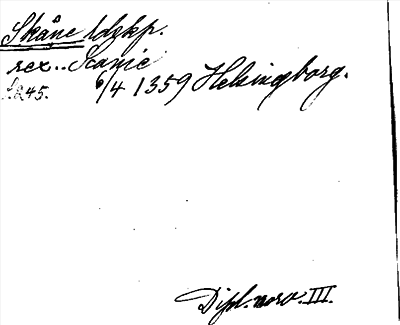 Skåne ldskp.
rex.. Scanie
s.245. 6/4 1359 Helsingborg.
Dipl. norv. III.